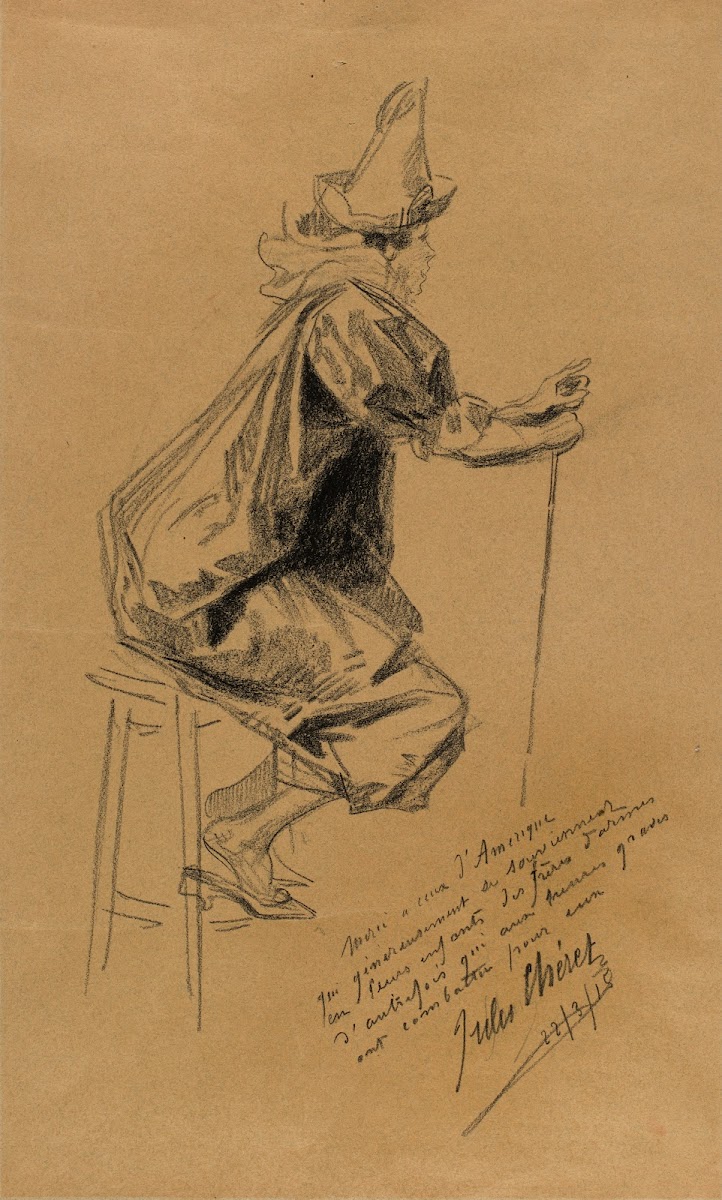 Merci a ceux d'Amerique
qui généreusement se souviennent
en leurs enfants des frères d'armes
d'autrefois qui aux heures graves
ont combattu pour eux
Jules Chéret
22/3/15